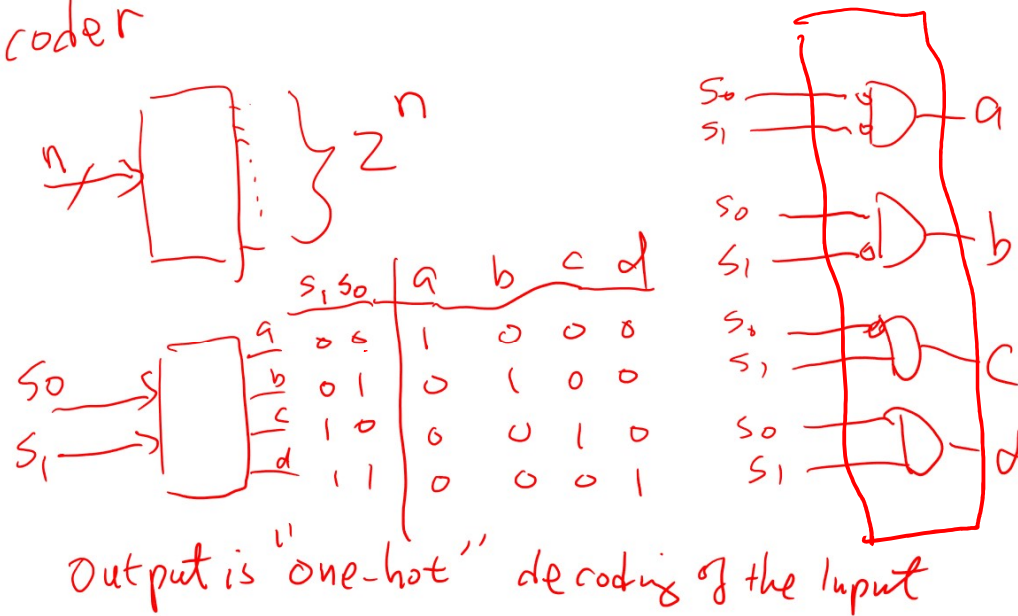 coder
n
2^n
S0
S1
a
b
c
d
S1 S0 a b c d
0 0 1 0 0 0
0 1 0 1 0 0
1 0 0 0 1 0
1 1 0 0 0 1
S0
S1
a
S0
S1
b
S0
S1
c
S0
S1
d
Output is "one-hot" decoding of the Input